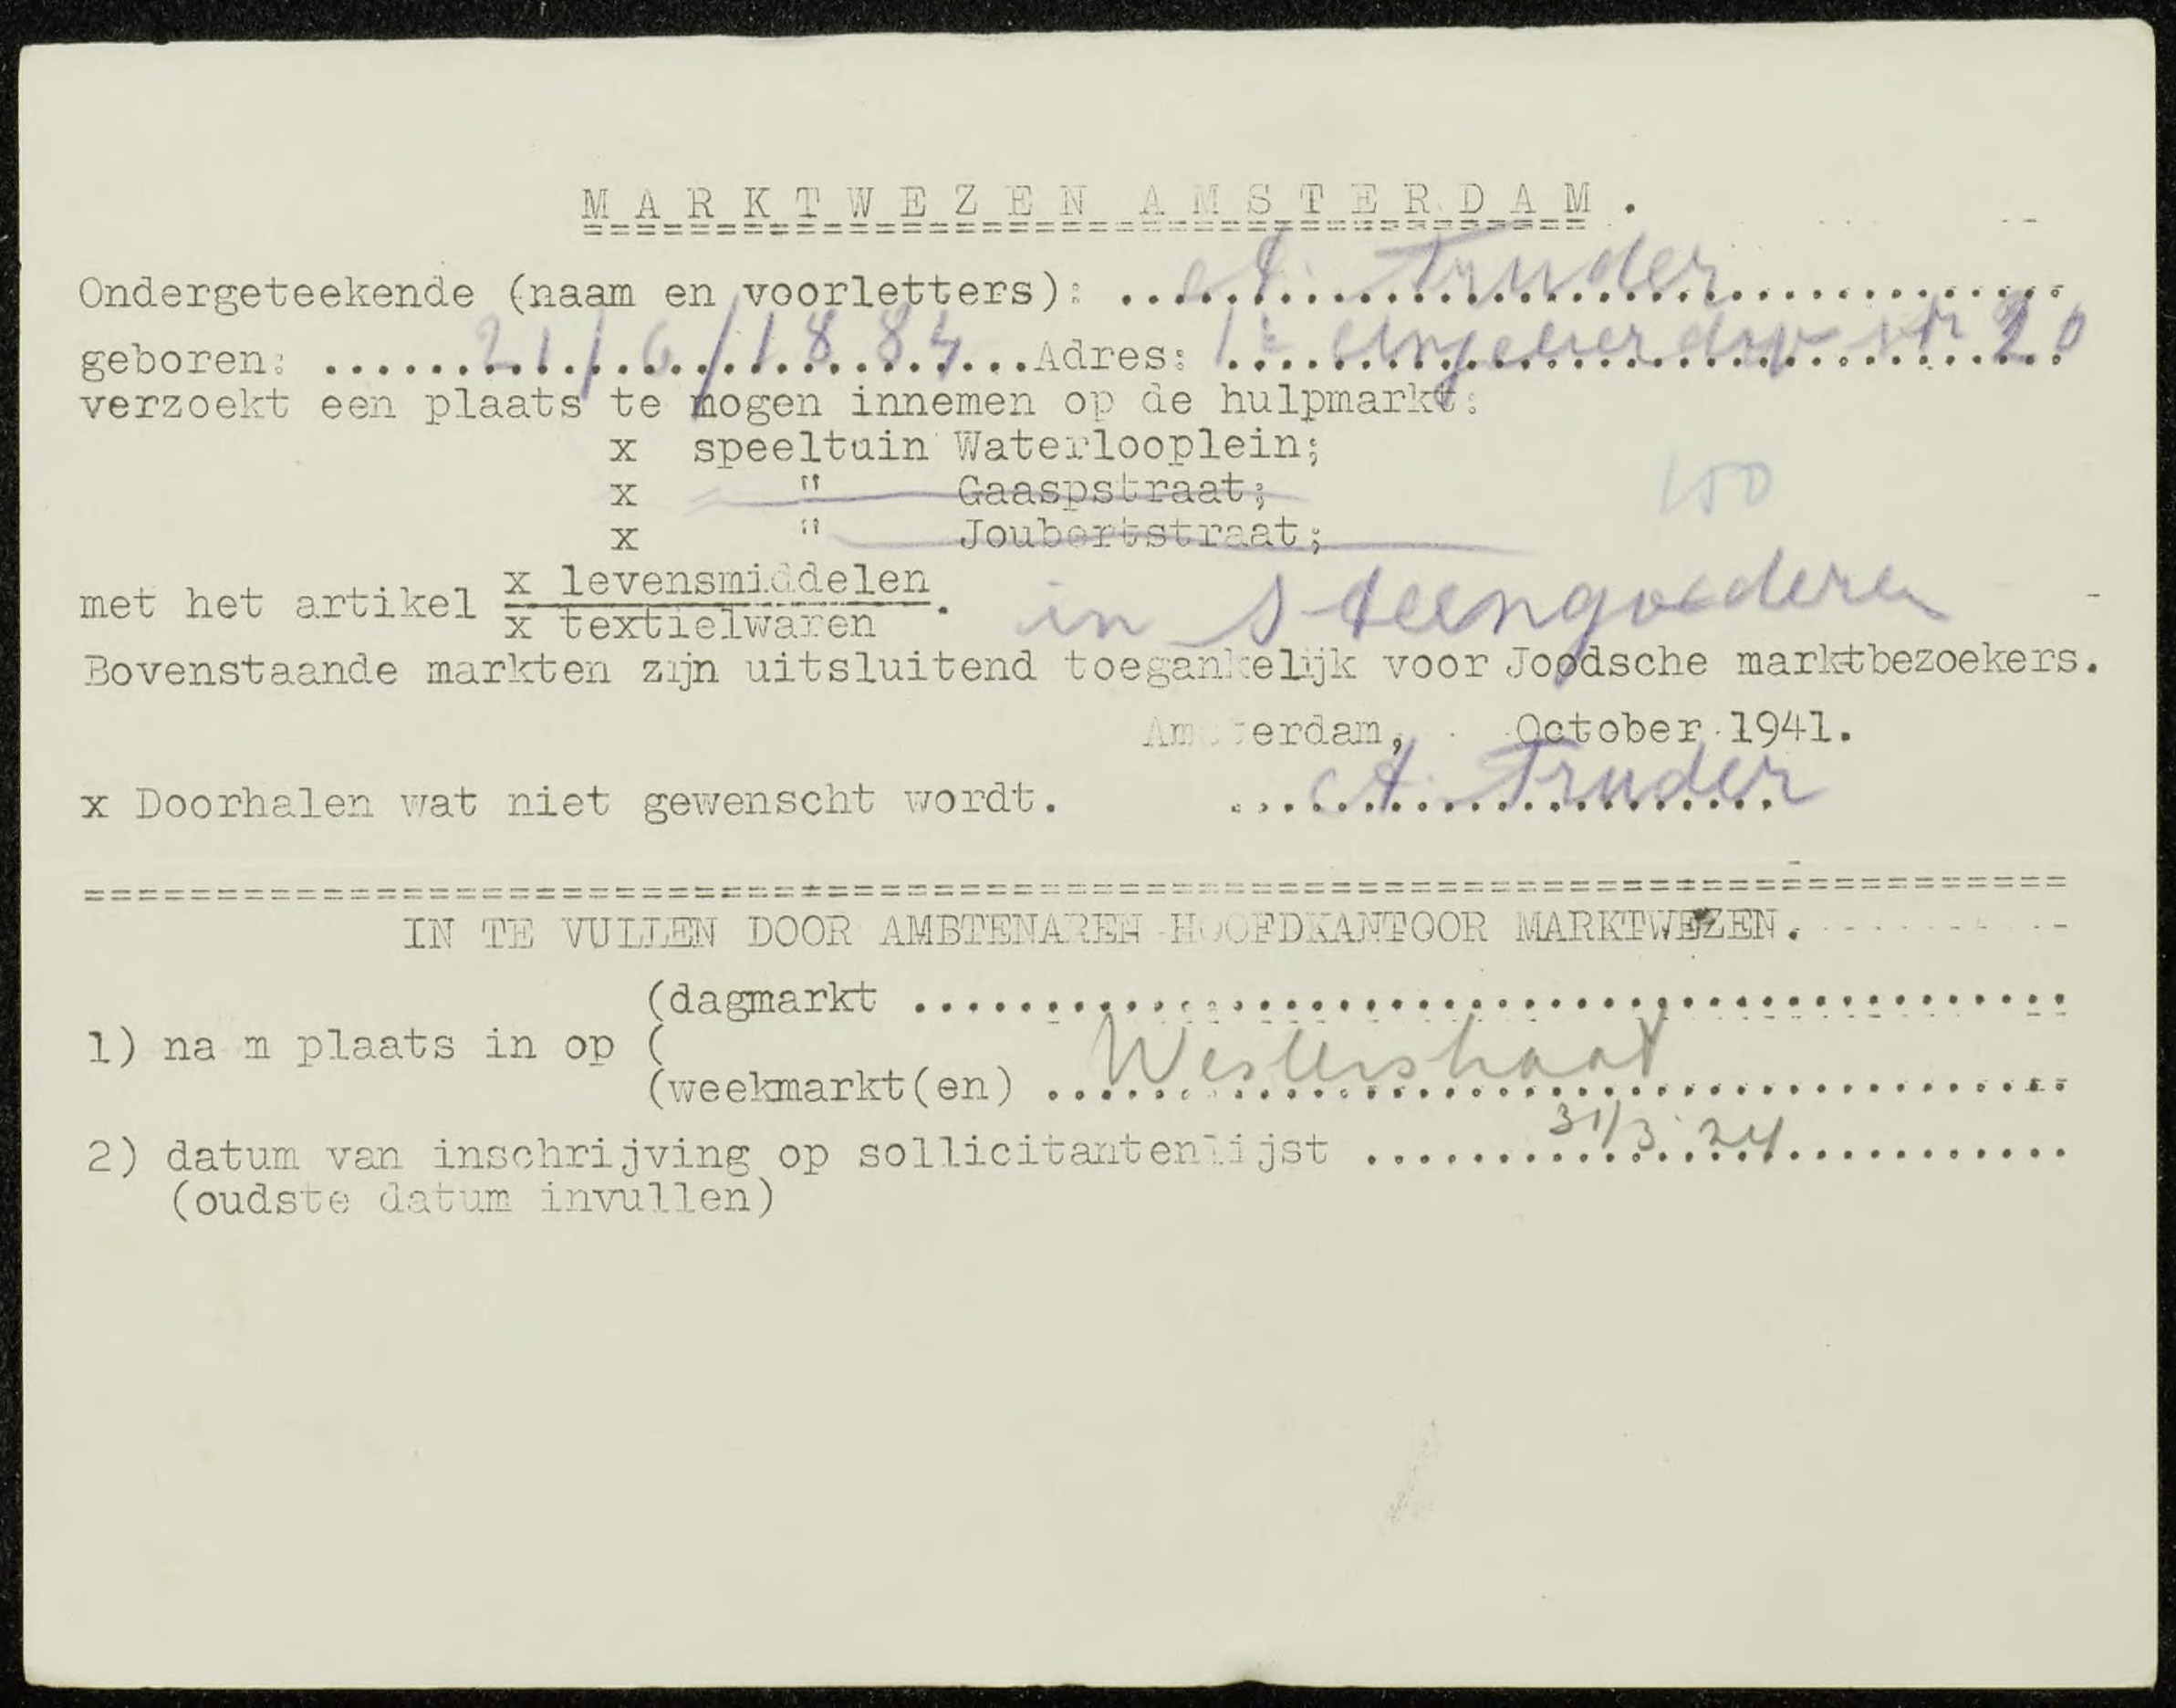 MARKTWEZEN AMSTERDAM.
Ondergeteekende (naam en voorletters): A. Truder
geboren: 21/6/1884 Adres: 1e str 20
verzoekt een plaats te mogen innemen op de hulpmarkt:
x speeltuin Waterlooplein;
x " Gaaspstraat;
x " Joubertstraat;
150
met het artikel x levensmiddelen
x textielwaren . in steengoederen
Bovenstaande markten zijn uitsluitend toegankelijk voor Joodsche marktbezoekers.
Amsterdam, October 1941.
x Doorhalen wat niet gewenscht wordt. A. Truder
IN TE VULLEN DOOR AMBTENAREN HOOFDKANTOOR MARKTWEZEN.
(dagmarkt
1) nam plaats in op (
(weekmarkt(en) Westerstraat
2) datum van inschrijving op sollicitantenlijst 31/3 24
(oudste datum invullen)